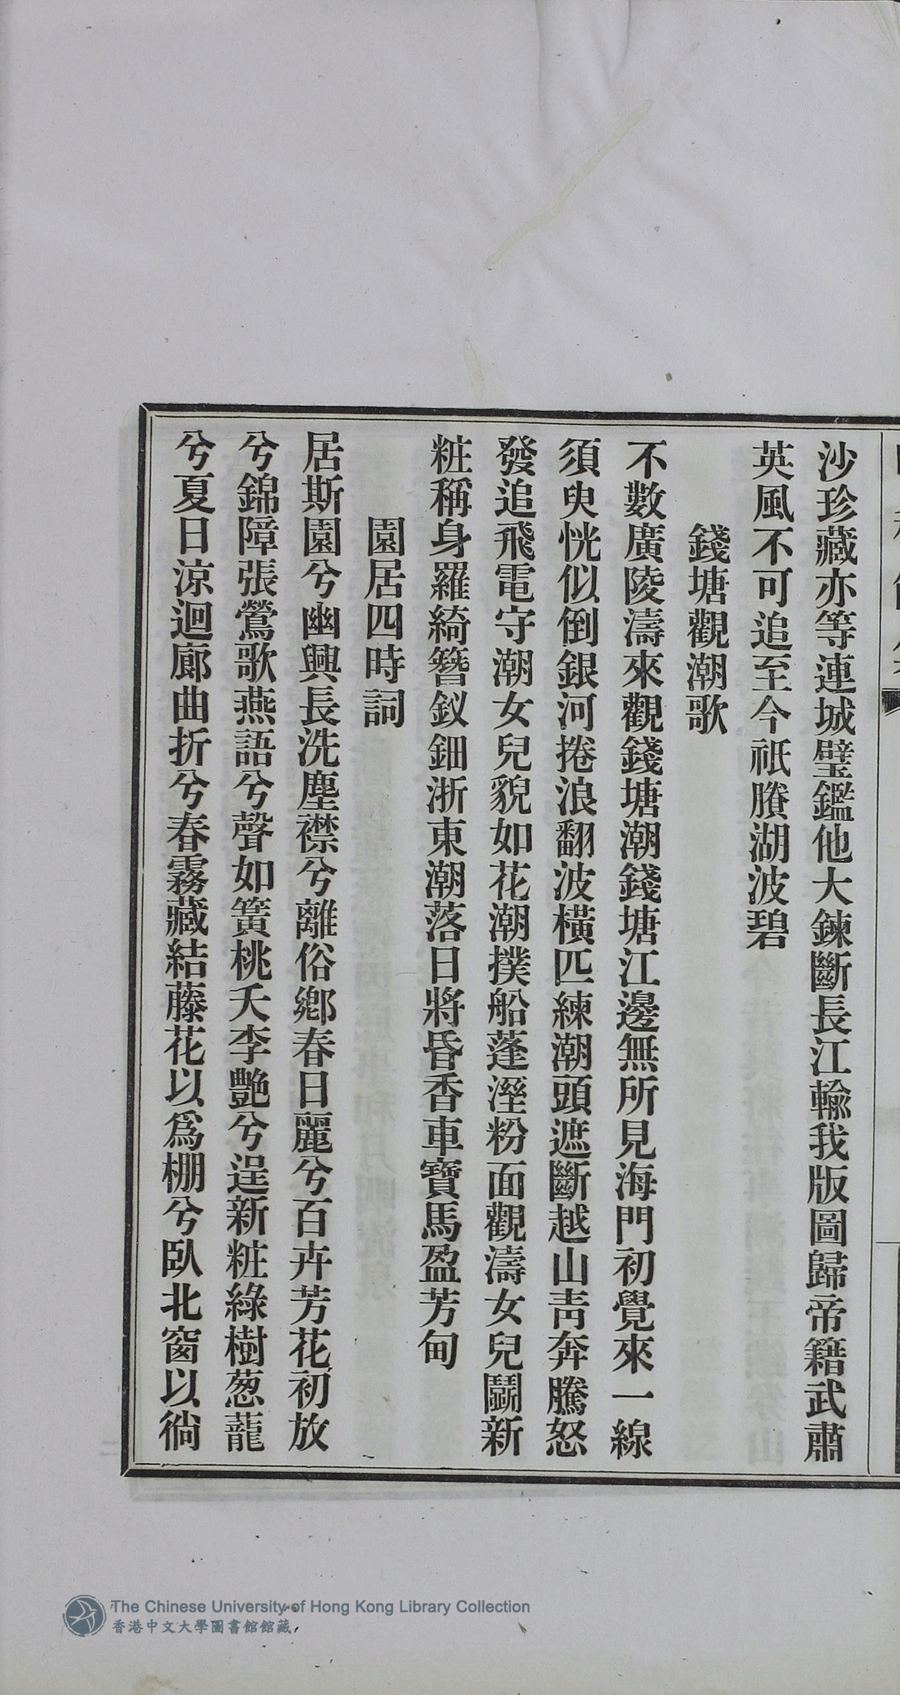 沙珍藏亦等連城璧鑑他大鍊斷長江輸我版圖歸帝籍武肅
英風不可追至今祇賸湖波碧
錢塘觀潮歌
不數廣陵濤來觀錢塘潮錢塘江邊無所見海門初覺來一線
須臾恍似倒銀河捲浪翻波橫匹練潮頭遮斷越山靑奔騰怒
發追飛電守潮女兒貌如花潮撲船蓬溼粉面觀濤女兒鬭新
粧稱身羅綺簪釵鈿浙東潮落日將昏香車寶馬盈芳甸
園居四時詞
居斯園兮幽興長洗塵襟兮離俗鄕春日麗兮百卉芳花初放
兮錦障張鶯歌燕語兮聲如簧桃夭李艷兮逞新粧綠樹葱蘢
兮夏日涼迴廊曲折兮春霧藏結藤花以爲棚兮臥北窗以徜
The Chinese University of Hong Kong Library Collection
香港中文大學圖書館館藏